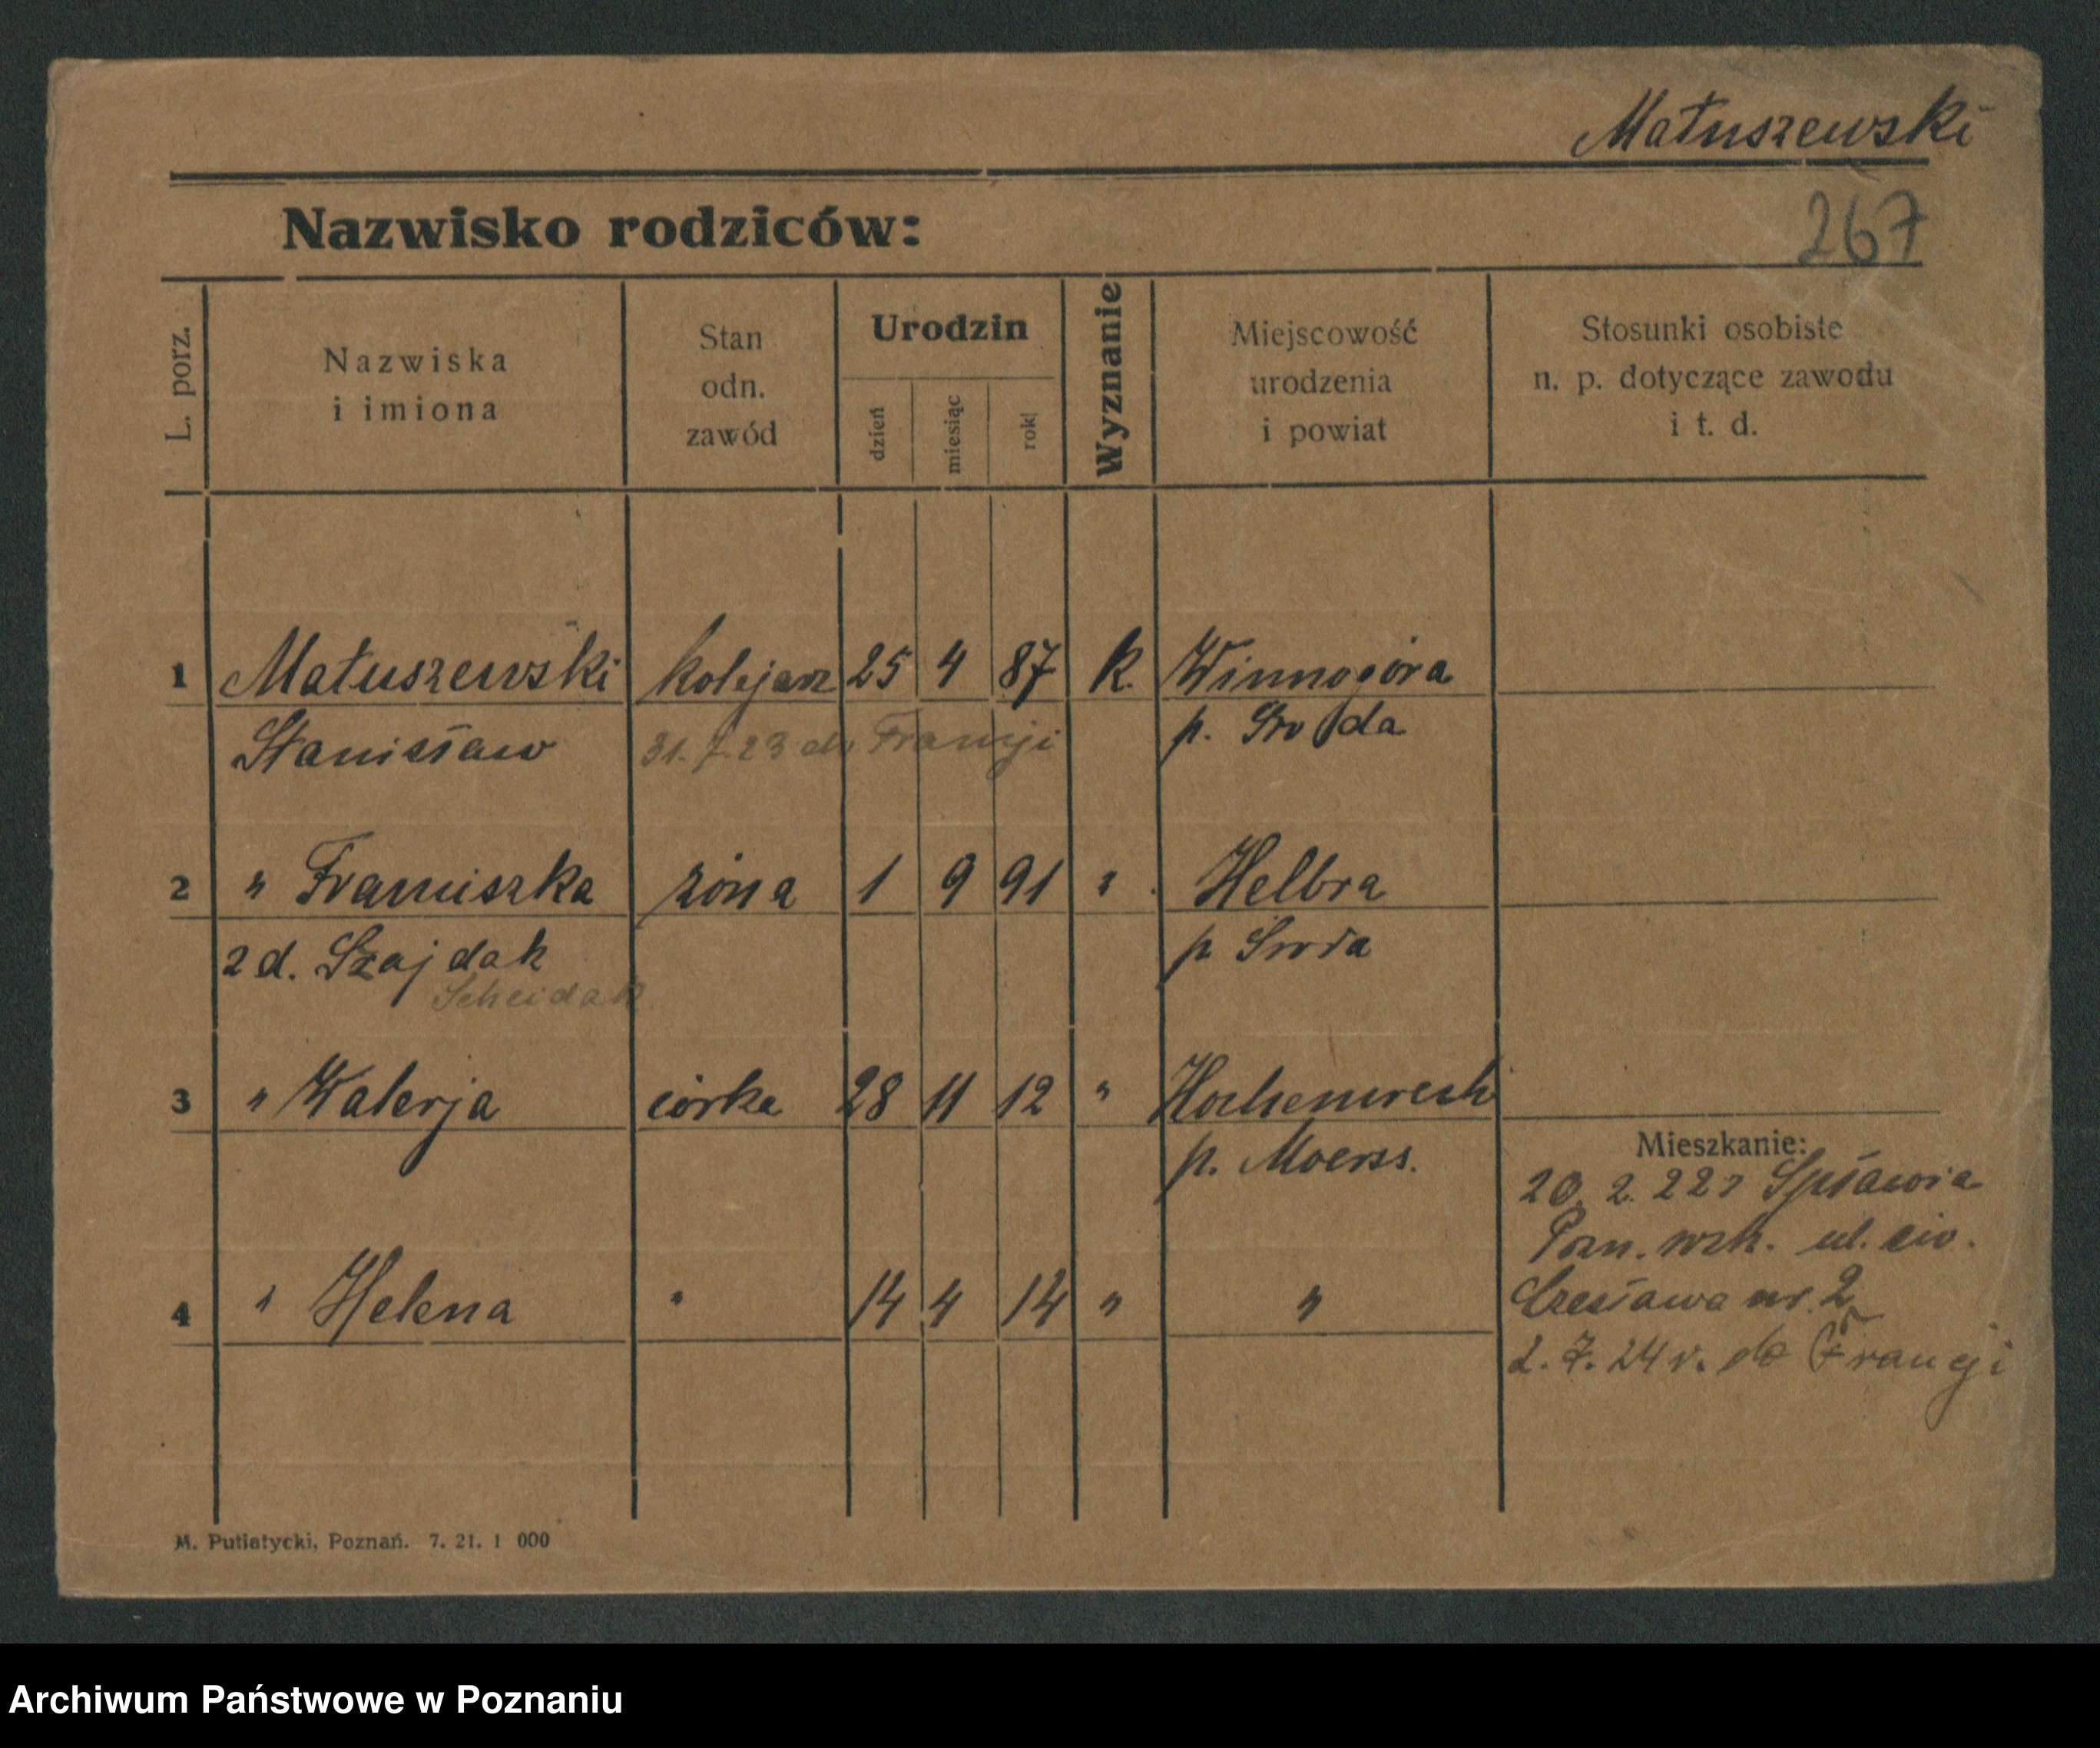 Matuszewski
Nazwisko rodziców:
267
L. porz.
Nazwiska
i imiona
Stan
odn.
zawód
Urodzin
dzień
miesiąc
rok
Wyznanie
Miejscowość
urodzenia
i powiat
Stosunki osobiste
n. p. dotyczące zawodu
i t. d.
1 Matuszewski kolejarz 25 4 87 k. Winnogóra
Stanisław 31.7.23 do Francji p. Środa
2 " Franciszka żona 1 9 91 " Helbra
zd. Szajdak p Środa
Scheidak
3 " Walerja córka 28 11 12 "
p. Moerss.
Mieszkanie:
20. 2. 22 r Spławia
Pozn. wsch. ul.
4 " Helena " 14 4 14 " "
Czesława nr. 2
2. 7. 24 r. do Francji
M. Putiatycki, Poznań. 7. 21. 1 000
Archiwum Państwowe w Poznaniu